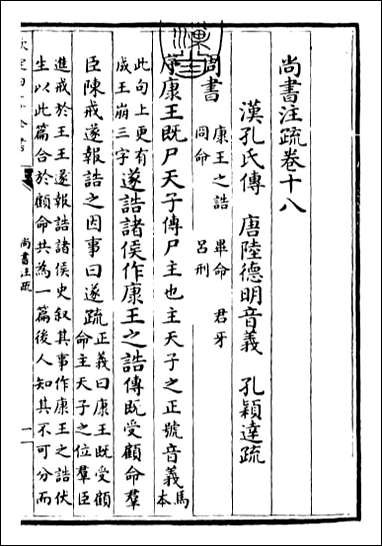 尚書注疏卷十八
漢孔氏傳 唐陸德明音義 孔穎達疏
尚書 康王之誥 畢命 君牙
冏命 呂刑
序康王既尸天子傳尸主也主天子之正號音義馬本
此句上更有
成王崩三字
遂誥諸侯作康王之誥傳既受顧命羣
臣陳戒遂報誥之因事曰遂疏
正義曰康王既受顧
命主天子之位羣臣
進戒於王王遂報誥諸侯史叙其事作康王之誥伏
生以此篇合於顧命共為一篇後人知其不可分而
尚書注疏
一